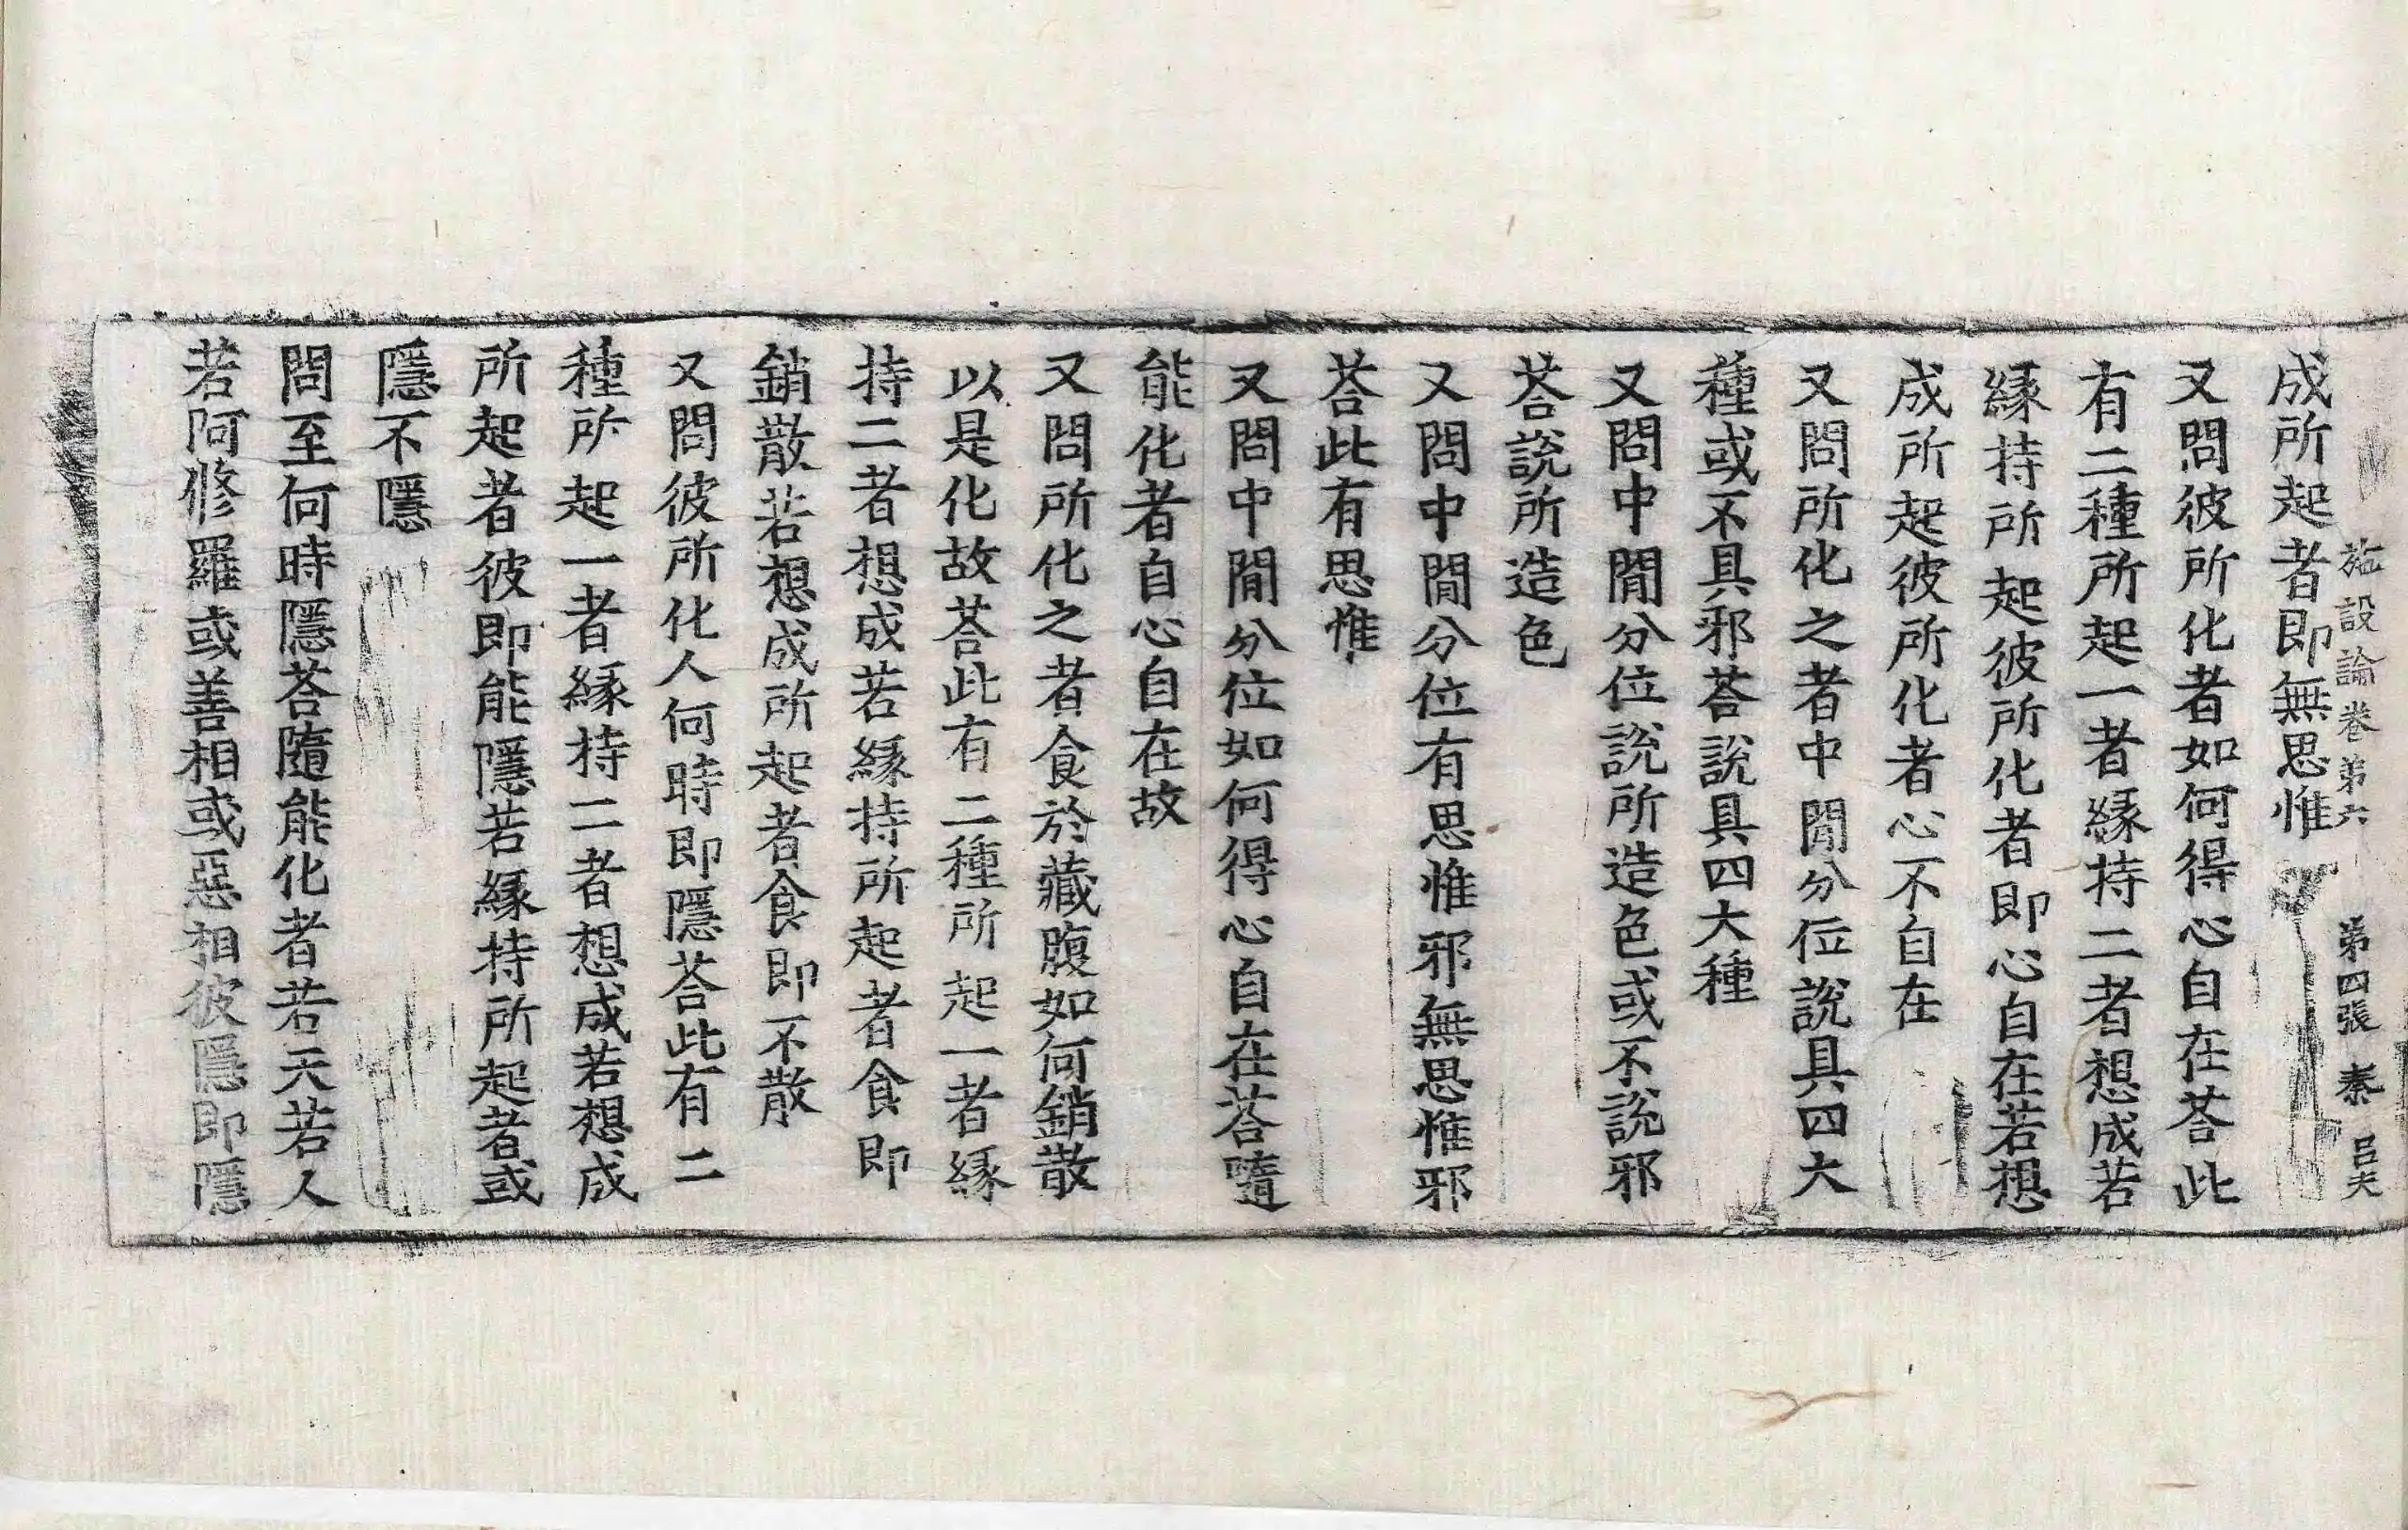 施設論卷第六 第四張 秦 呂夫
成所起者即無思惟
又問彼所化者如何得心自在荅此
有二種所起一者緣持二者想成若
緣持所起彼所化者即心自在若想
成所起彼所化者心不自在
又問所化之者中閒分位說具四大
種或不具邪荅說具四大種
又問中閒分位說所造色或不說邪
荅說所造色
又問中閒分位有思惟邪無思惟邪
荅此有思惟
又問中閒分位如何得心自在荅隨
能化者自心自在故
又問所化之者食於藏腹如何銷散
以是化故荅此有二種所起一者緣
持二者想成若緣持所起者食即
銷散若想成所起者食即不散
又問彼所化人何時即隱荅此有二
種所起一者緣持二者想成若想成
所起者彼即能隱若緣持所起者或
隱不隱
問至何時隱荅隨能化者若天若人
若阿修羅或善相或惡相彼隱即隱